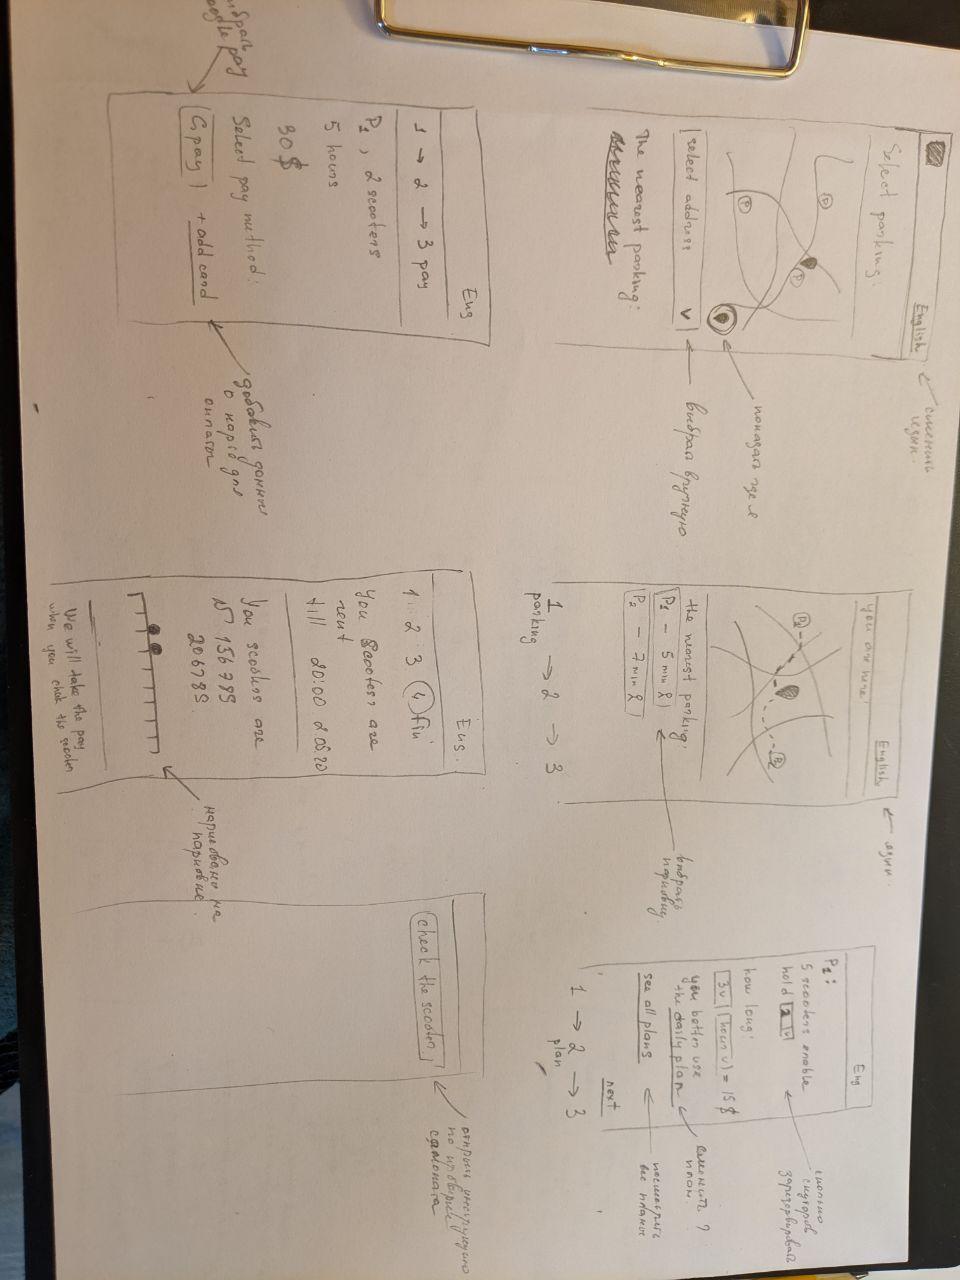 English
сменить
язык.
Select parking:
P
P
P
показать где я
select address v
выбрал вручную
The nearest parking:
English
язык.
you are here!
P1
P2
the nearest parking:
P1 - 5 min
P2 - 7 min
выбрать
парковку
1 → 2 → 3
parking
Eng
P1:
5 scooters enable
hold 2 v
сколько
скутеров
зарезервировать
how long:
3 v hour v = 15 $
you better use
the daily plan
сменить ?
план.
see all plans
посмотреть
все планы
next
1 → 2 → 3
plan
Eng
1 → 2 → 3 pay
P1, 2 scooters
5 hours
30 $
Select pay method:
G pay + add card
pay
добавить данные
о карте для
оплаты
Eng.
1 2 3 4 fin
You Scooters are
rent
till 20:00 2.05.20
You scooters are
№ 156789
206789
нарисовано на
парковке
We will take the pay
when you chek the scooter
check the scooter
открыть инструкцию
по проверке
самоката